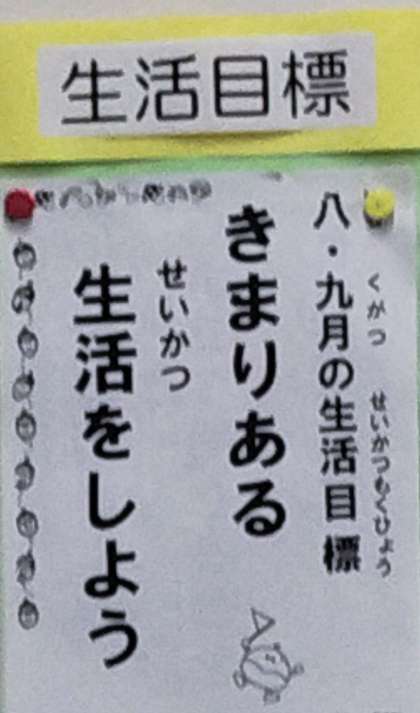 生活目標
八・九月の生活目標
くがつ せいかつもくひょう
きまりある
生活をしよう
せいかつ